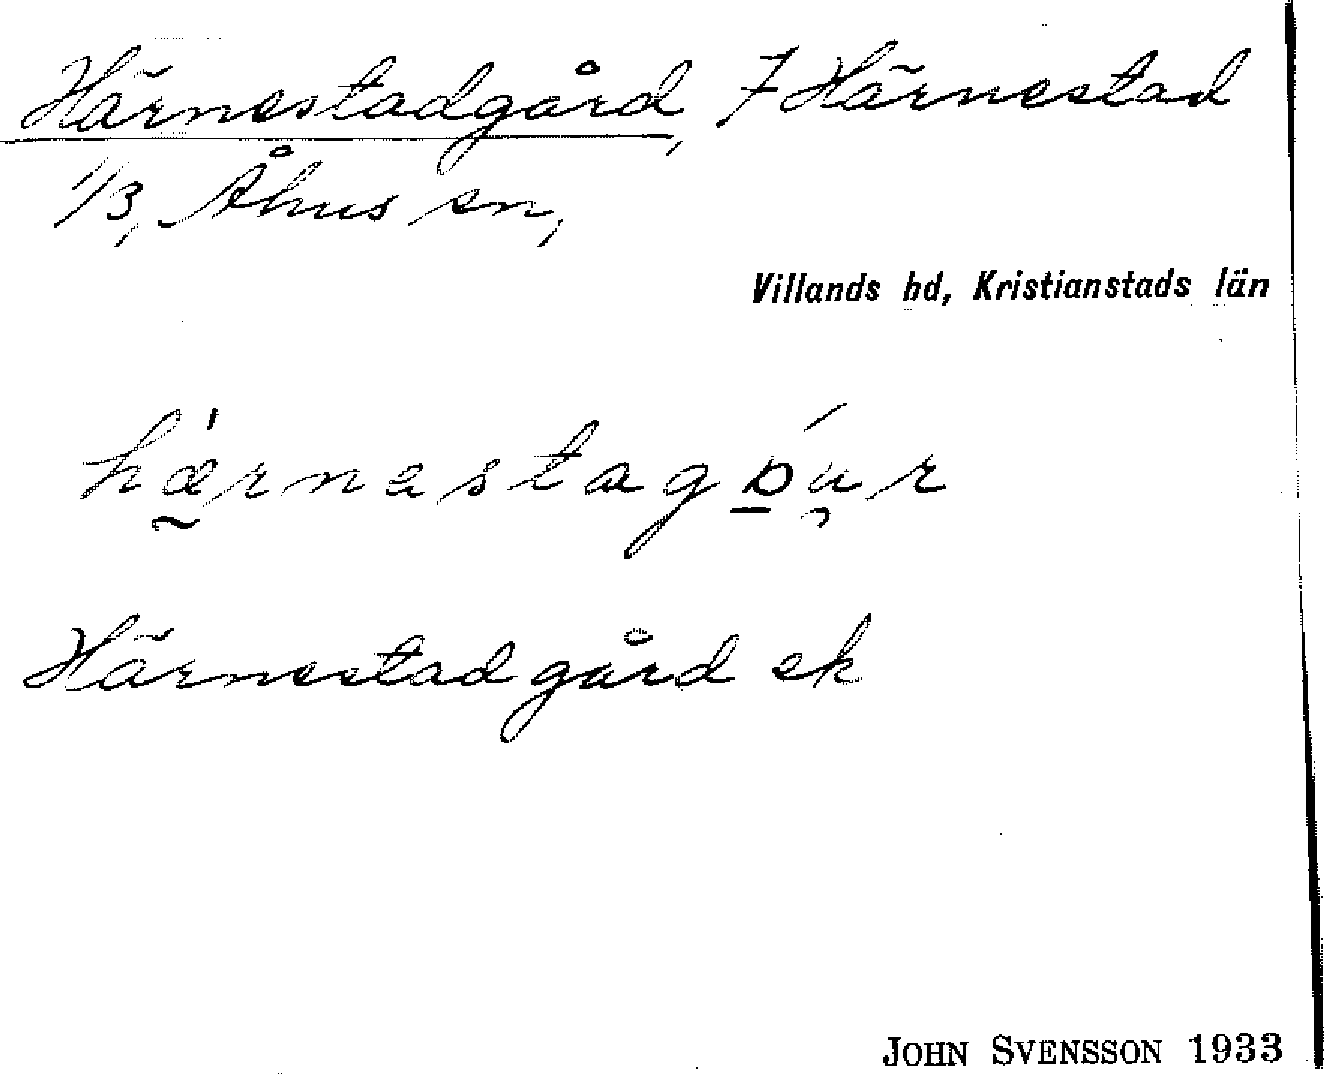 Härnestadgård, 7 Härnestad
1/3, Åhus sn,
Villands hd, Kristianstads län
hǽ̰rnastagɒ́u̯r
Härnestadgård ek
JOHN SVENSSON 1933